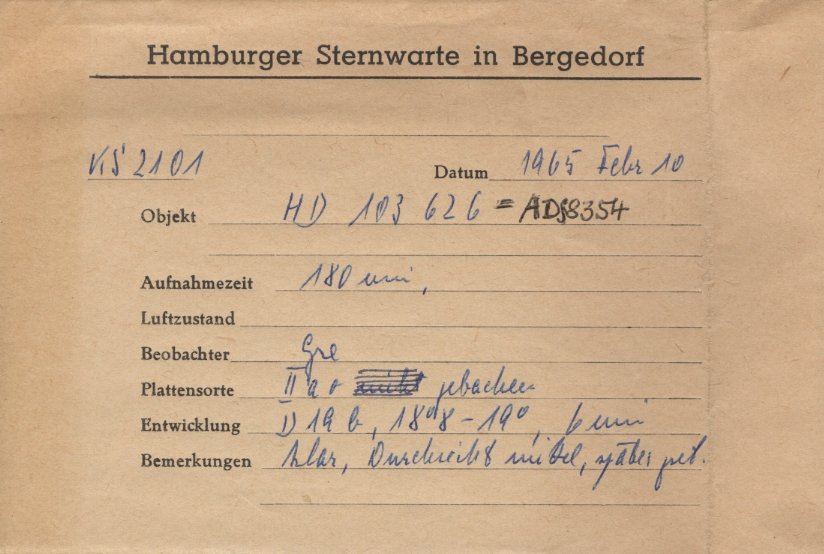 Hamburger Sternwarte in Bergedorf
KS 2101 Datum 1965 Febr 10
Objekt HD 103 626 = ADS8354
Aufnahmezeit 180 min,
Luftzustand
Beobachter Gre
Plattensorte II a o gebacken
Entwicklung D 19 b, 18°8 - 19°, 6 min
Bemerkungen klar, Durchsicht mittel, später